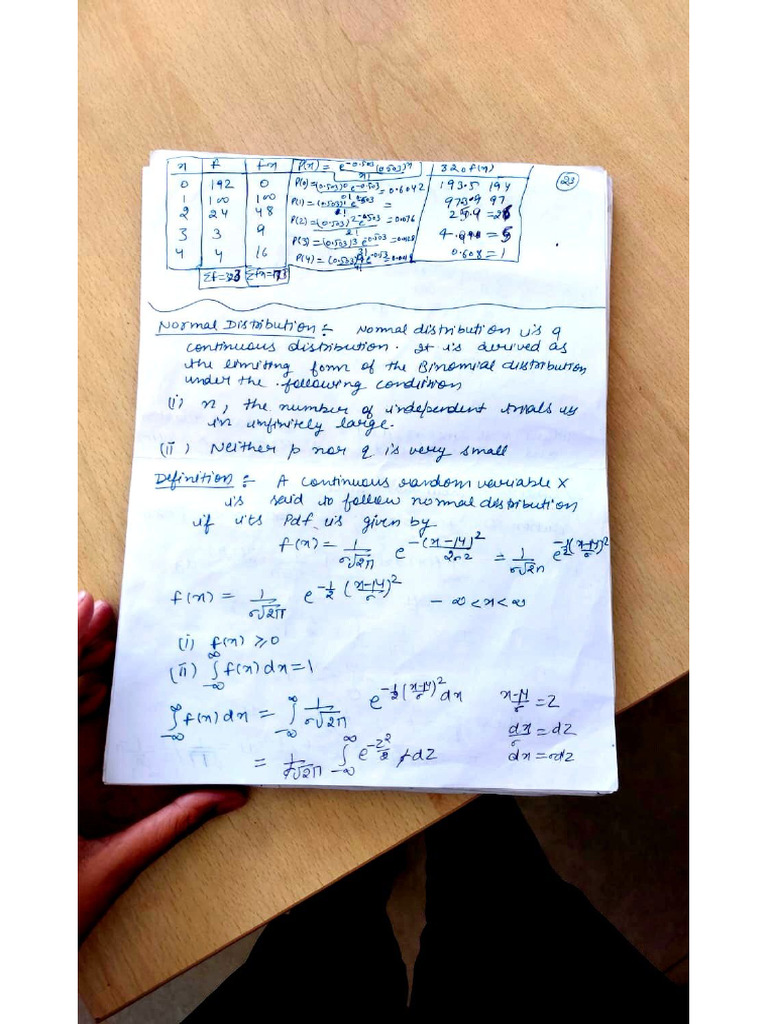 23
x f fx P(x) = e^-0.503 (0.503)^x / x! 320 f(x)
0 192 0 P(0) = (0.503)^0 e^-0.503 / 0! = 0.6042 193.5 194
1 100 100 P(1) = (0.503)^1 e^-0.503 = 97
2 24 48 P(2) = (0.503)^2 e^-0.503 / 2! = 0.076
3 3 9 P(3) = (0.503)^3 e^-0.503 / 3! = 5
4 4 16 P(4) = 0.608 = 1
Σf=323
Normal Distribution :- Normal distribution is a
continuous distribution. It is derived as
the limiting form of the Binomial distribution
under the following condition
(i) n, the number of independent trials is
in infinitely large.
(ii) Neither p nor q is very small
Definition :- A continuous random variable X
is said to follow normal distribution
if its Pdf is given by
f(x) = 1/σ√2π e^-(x-μ)²/2σ² = 1/σ√2π e^-½(x-μ/σ)²
f(x) = 1/σ√2π e^-½(x-μ/σ)² -∞<x<∞
(i) f(x) ≥ 0
(ii) ∫_-∞^∞ f(x) dx = 1
∫_-∞^∞ f(x) dx = ∫_-∞^∞ 1/σ√2π e^-½(x-μ/σ)² dx x-μ/σ = z
dx/σ = dz
= 1/σ√2π ∫_-∞^∞ e^-z²/2 σ dz dx = σdz